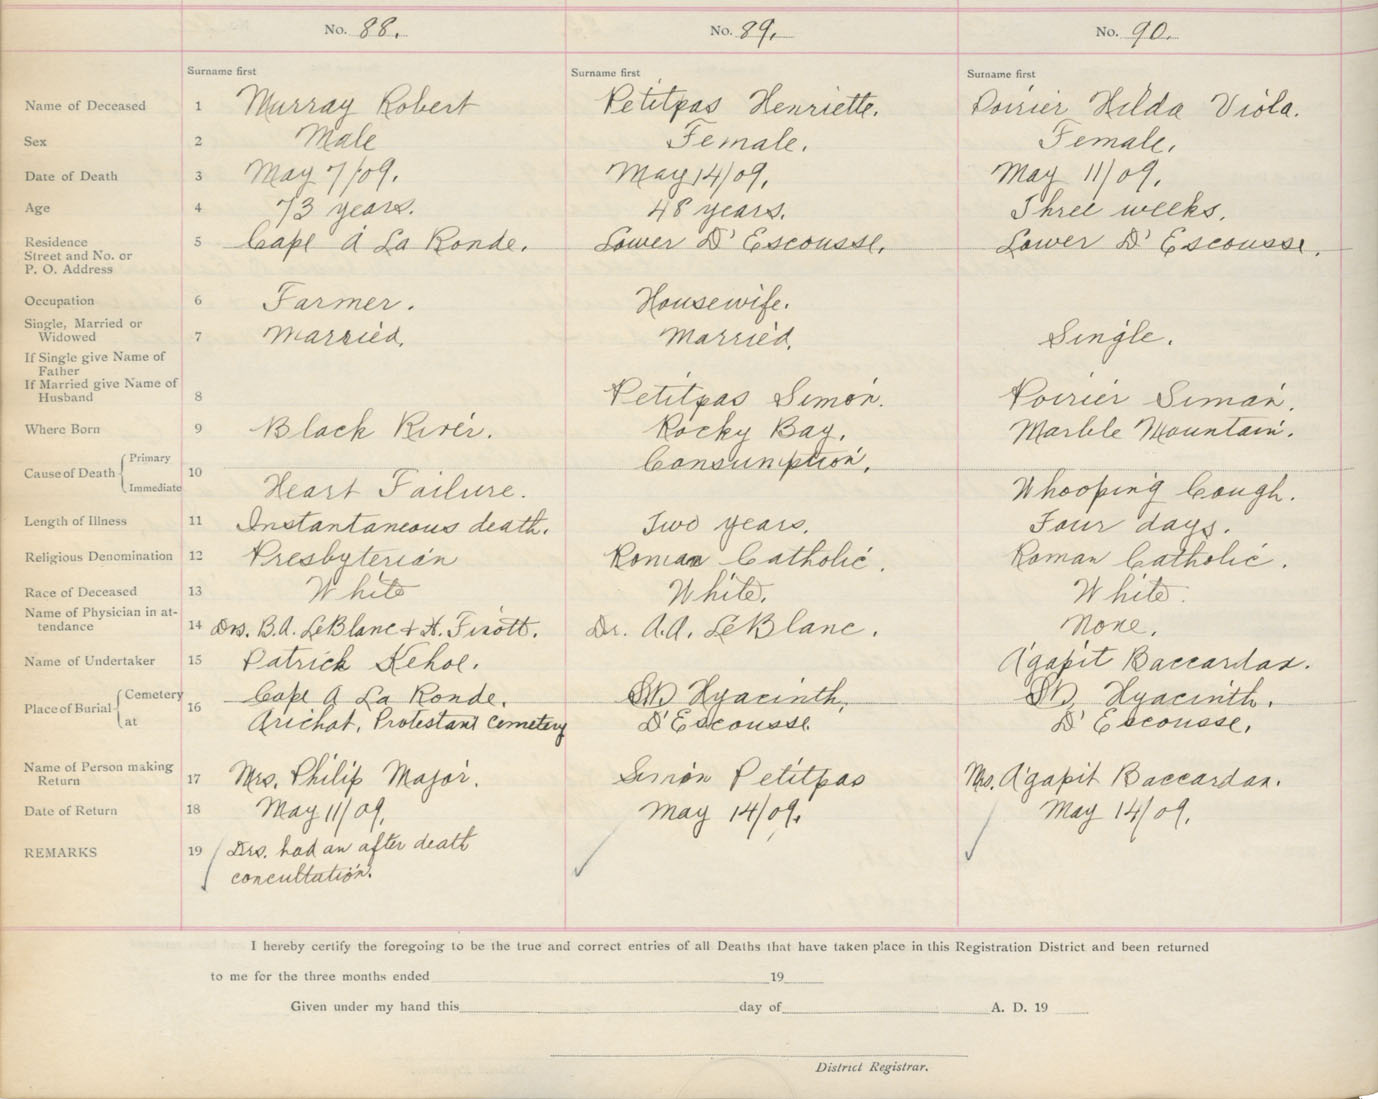 No. 88. No. 89. No. 90.
Surname first Surname first Surname first
Name of Deceased 1 Murray Robert Petitpas Henriette. Poirier Hilda Viola.
Sex 2 Male Female. Female.
Date of Death 3 May 7/09. May 14/09. May 11/09.
Age 4 73 years. 48 years. Three weeks.
Residence 5 Cape A La Ronde. Lower D' Escousse. Lower D' Escousse.
Street and No. or
P. O. Address
Occupation 6 Farmer. Housewife.
Single, Married or
Widowed 7 Married. Married. Single.
If Single give Name of
Father
If Married give Name of
Husband 8 Petitpas Simon. Poirier Siman.
Where Born 9 Black River. Rocky Bay. Marble Mountain.
Cause of Death Primary 10 Consumption.
Immediate Heart Failure. Whooping Cough.
Length of Illness 11 Instantaneous death. Two years. Four days.
Religious Denomination 12 Presbyterian Roman Catholic. Roman Catholic.
Race of Deceased 13 White White. White.
Name of Physician in at-
tendance 14 Drs. B.A. LeBlanc + H. Fixott. Dr. A.A. LeBlanc. None.
Name of Undertaker 15 Patrick Kehoe. Agapit Baccardax.
Place of Burial Cemetery 16 Cape A La Ronde. St. Hyacinth, St. Hyacinth.
at Arichat, Protestant Cemetery D'Escousse. D' Escousse.
Name of Person making
Return 17 Mrs. Philip Major. Simon Petitpas Mrs. Agapit Baccardax.
Date of Return 18 May 11/09. May 14/09. May 14/09.
REMARKS 19 Drs. had an after death
concultation.
I hereby certify the foregoing to be the true and correct entries of all Deaths that have taken place in this Registration District and been returned
to me for the three months ended 19
Given under my hand this day of A. D. 19
District Registrar.